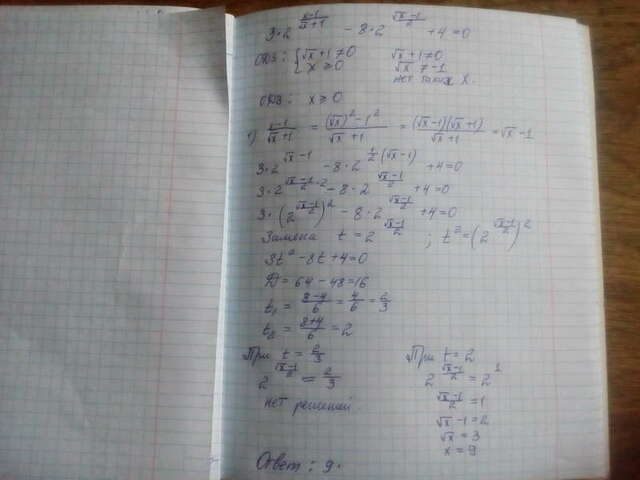 3·2^((x-1)/(√x+1)) - 8·2^((√x-1)/2) + 4 = 0
ОДЗ: { √x+1 ≠ 0   √x+1 ≠ 0
x ≥ 0   √x ≠ -1
нет таких x.
ОДЗ: x ≥ 0
1) (x-1)/(√x+1) = ((√x)²-1²)/(√x+1) = ((√x-1)(√x+1))/(√x+1) = √x-1
3·2^(√x-1) - 8·2^(1/2(√x-1)) + 4 = 0
3·2^((√x-1)/2·2) - 8·2^((√x-1)/2) + 4 = 0
3·(2^((√x-1)/2))² - 8·2^((√x-1)/2) + 4 = 0
Замена t = 2^((√x-1)/2) ; t² = (2^((√x-1)/2))²
3t² - 8t + 4 = 0
Д = 64 - 48 = 16
t₁ = (8-4)/6 = 4/6 = 2/3
t₂ = (8+4)/6 = 2
При t = 2/3
2^((√x-1)/2) = 2/3
нет решений
При t = 2
2^((√x-1)/2) = 2¹
(√x-1)/2 = 1
√x - 1 = 2
√x = 3
x = 9
Ответ: 9.